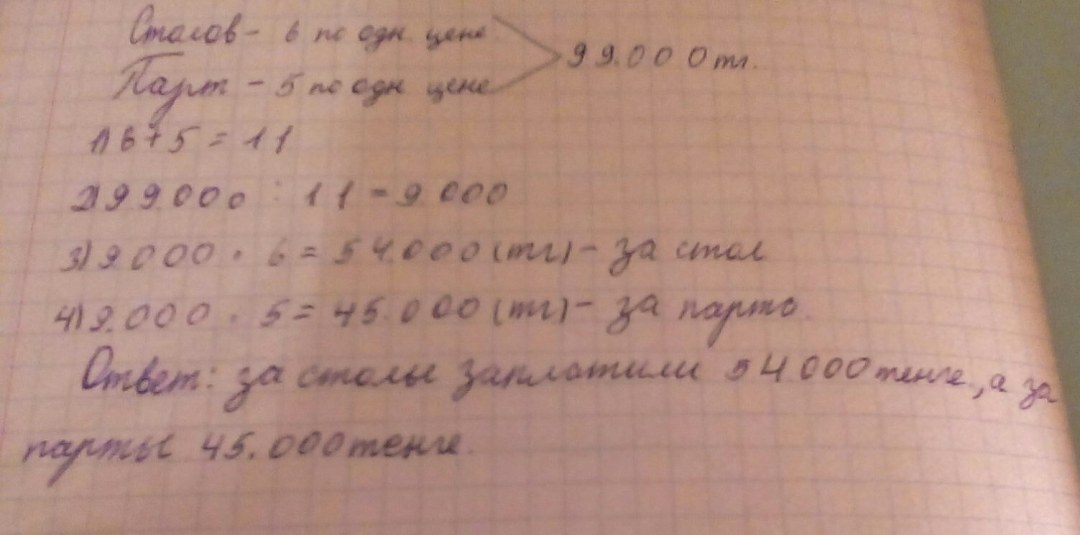 Столов - 6 по одн. цене
99.000 тг.
Парт - 5 по одн цене
1) 6+5=11
2) 99.000 : 11 = 9.000
3) 9.000 · 6 = 54.000 (тг) - за стол
4) 9.000 · 5 = 45.000 (тг) - за парто.
Ответ: за столы заплатили 54.000 тенге, а за
парты 45.000 тенге.